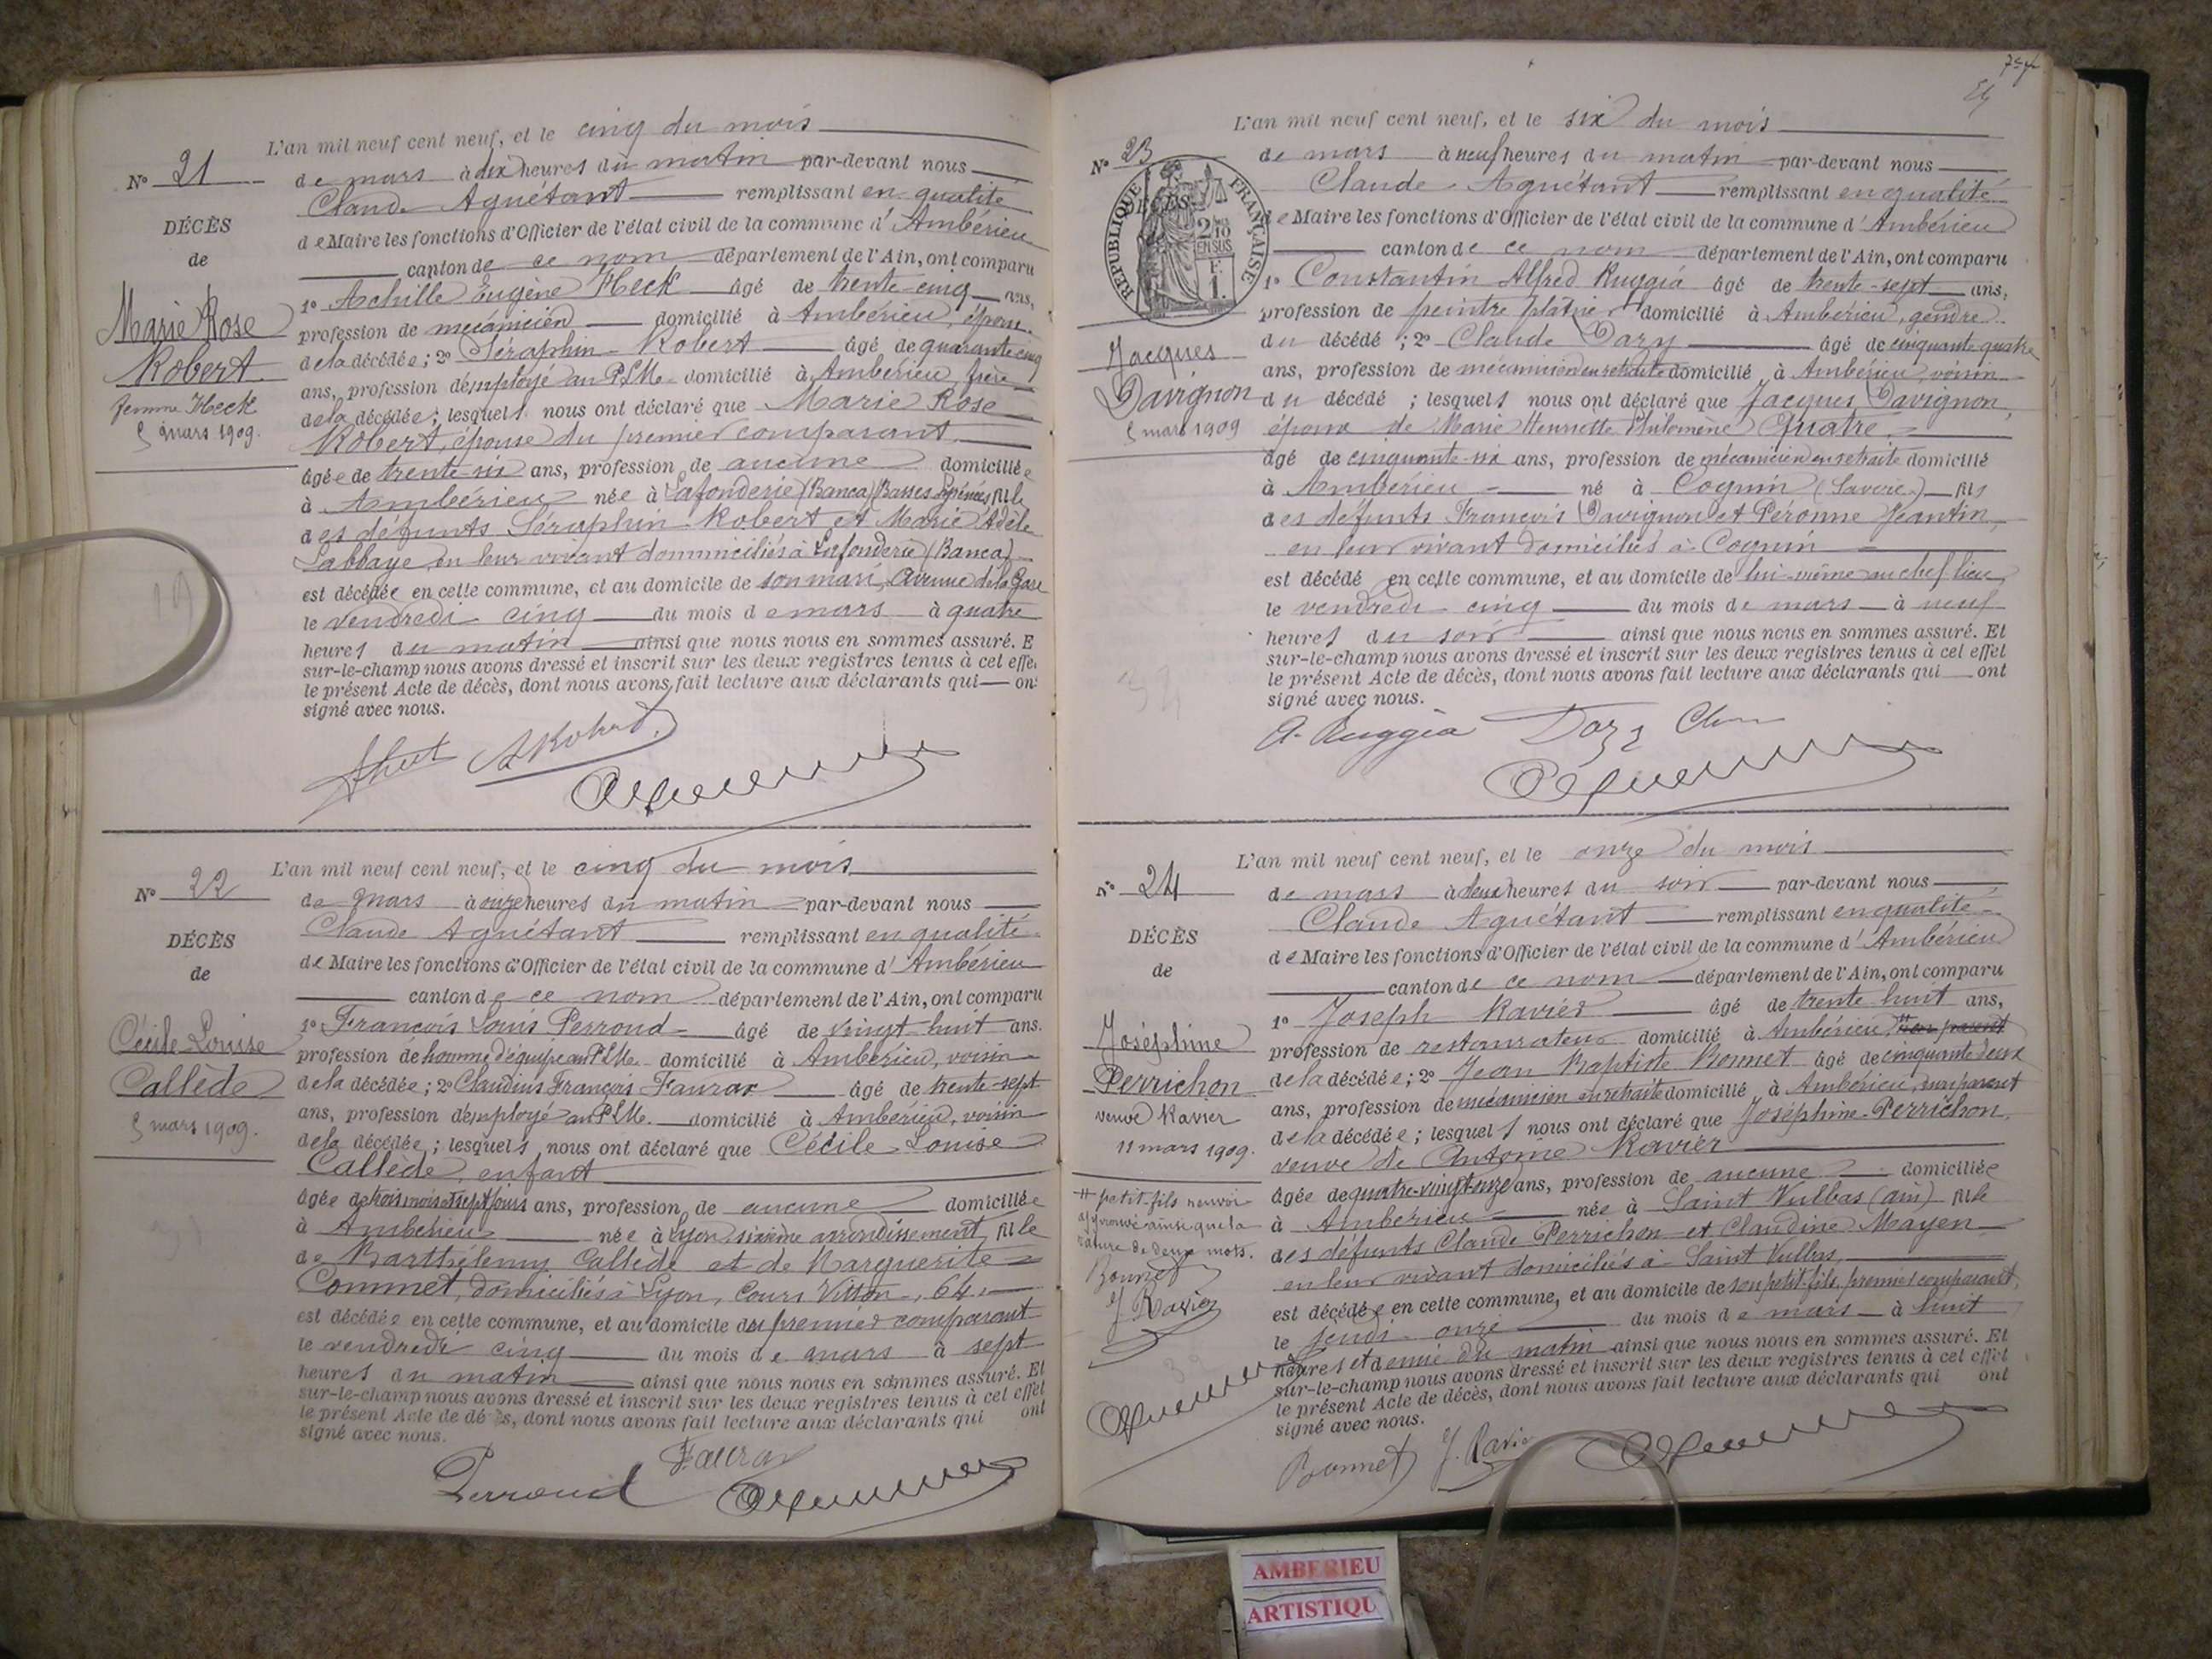 L'an mil neuf cent neuf, et le cinq du mois
N° 21
de mars à dix heures du matin par-devant nous
Claude Aguétant remplissant en qualité
DÉCÈS
de Maire les fonctions d'Officier de l'état civil de la commune d'Ambérieu
de
canton de ce nom département de l'Ain, ont comparu
Marie Rose
Robert
femme Heck
5 mars 1909.
1° Achille Eugène Heck âgé de trente-cinq ans,
profession de mécanicien domicilié à Ambérieu, époux
de la décédée; 2° Séraphin Robert âgé de quarante cinq
ans, profession d'employé au PLM domicilié à Ambérieu, frère
de la décédée; lesquels nous ont déclaré que Marie Rose
Robert, épouse du premier comparant
âgée de trente-six ans, profession de aucune domiciliée
à Ambérieu née à Lafonderie (Banca) Basses Pyrénées fille
des défunts Séraphin Robert et Marie Adèle
Labbaye en leur vivant domiciliés à Lafonderie (Banca)
est décédée en cette commune, et au domicile de son mari, avenue de la Gare
le vendredi cinq du mois de mars à quatre
heures du matin ainsi que nous nous en sommes assuré. E
sur-le-champ nous avons dressé et inscrit sur les deux registres tenus à cet effe
le présent Acte de décès, dont nous avons fait lecture aux déclarants qui on
signé avec nous.
L'an mil neuf cent neuf, et le cinq du mois
N° 22
de mars à onze heures du matin par-devant nous
Claude Aguétant remplissant en qualité
DÉCÈS
de Maire les fonctions d'Officier de l'état civil de la commune d'Ambérieu
de
canton de ce nom département de l'Ain, ont comparu
Cécile Louise
Callède
5 mars 1909.
1° François Louis Perroud âgé de vingt-huit ans.
profession de homme d'équipe au PLM domicilié à Ambérieu, voisin
de la décédée; 2° Claudius François Faurax âgé de trente-sept
ans, profession d'employé au PLM. domicilié à Ambérieu, voisin
de la décédée; lesquels nous ont déclaré que Cécile Louise
Callède, enfant
âgée de trois mois et sept jours ans, profession de aucune domiciliée
à Ambérieu née à Lyon, sixième arrondissement, fille
de Barthélemy Callède et de Marguerite
Commet, domiciliés à Lyon, Cours Vitton, 64,
est décédée en cette commune, et au domicile du premier comparant
le vendredi cinq du mois de mars à sept
heures du matin ainsi que nous nous en sommes assuré. Et
sur-le-champ nous avons dressé et inscrit sur les deux registres tenus à cet effet
le présent Acte de dé s, dont nous avons fait lecture aux déclarants qui ont
signé avec nous.
Perroud Faurax
L'an mil neuf cent neuf, et le six du mois
N° 23
de mars à neuf heures du matin par-devant nous
Claude Aguétant remplissant en qualité
RÉPUBLIQUE FRANÇAISE
2/10 EN SUS
de Maire les fonctions d'Officier de l'état civil de la commune d'Ambérieu
canton de ce nom département de l'Ain, ont comparu
Jacques
Davignon
5 mars 1909
1° Constantin Alfred Ruggia âgé de trente-sept ans,
profession de peintre plâtrier domicilié à Ambérieu, gendre
du décédé; 2° Claude Dazy âgé de cinquante-quatre
ans, profession de mécanicien en retraite domicilié à Ambérieu, voisin
du décédé; lesquels nous ont déclaré que Jacques Davignon,
époux de Marie Henriette Philomène Quatre
âgé de cinquante-six ans, profession de mécanicien en retraite domicilié
à Ambérieu né à Cognin (Savoie) fils
des défunts François Davignon et Peronne Jeantin,
en leur vivant domiciliés à Cognin
est décédé en cette commune, et au domicile de lui-même au chef lieu
le vendredi cinq du mois de mars à neuf
heures du soir ainsi que nous nous en sommes assuré. Et
sur-le-champ nous avons dressé et inscrit sur les deux registres tenus à cet effet
le présent Acte de décès, dont nous avons fait lecture aux déclarants qui ont
signé avec nous.
A. Ruggia Dazy
L'an mil neuf cent neuf, et le onze du mois
N° 24
de mars à deux heures du soir par-devant nous
Claude Aguétant remplissant en qualité
DÉCÈS
de Maire les fonctions d'Officier de l'état civil de la commune d'Ambérieu
de
canton de ce nom département de l'Ain, ont comparu
Joséphine
Perrichon
veuve Ravier
11 mars 1909.
1° Joseph Ravier âgé de trente huit ans,
profession de restaurateur domicilié à Ambérieu, non parent
de la décédée; 2° Jean Baptiste Bonnet âgé de cinquante deux
ans, profession de mécanicien en retraite domicilié à Ambérieu, non parent
de la décédée; lesquels nous ont déclaré que Joséphine Perrichon,
veuve de Antoine Ravier
âgée de quatre-vingt-onze ans, profession de aucune domiciliée
à Ambérieu née à Saint Vulbas (ain) fille
des défunts Claude Perrichon et Claudine Mayen
en leur vivant domiciliés à Saint Vulbas,
est décédée en cette commune, et au domicile de son petit fils, premier comparant,
le jeudi onze du mois de mars à huit
heures et demie du matin ainsi que nous nous en sommes assuré. Et
sur-le-champ nous avons dressé et inscrit sur les deux registres tenus à cet effet
le présent Acte de décès, dont nous avons fait lecture aux déclarants qui ont
signé avec nous.
petit-fils renvoi
approuvé ainsi que la
rature de deux mots.
Bonnet
J. Ravier
Bonnet J. Ravier
AMBERIEU
ARTISTIQU